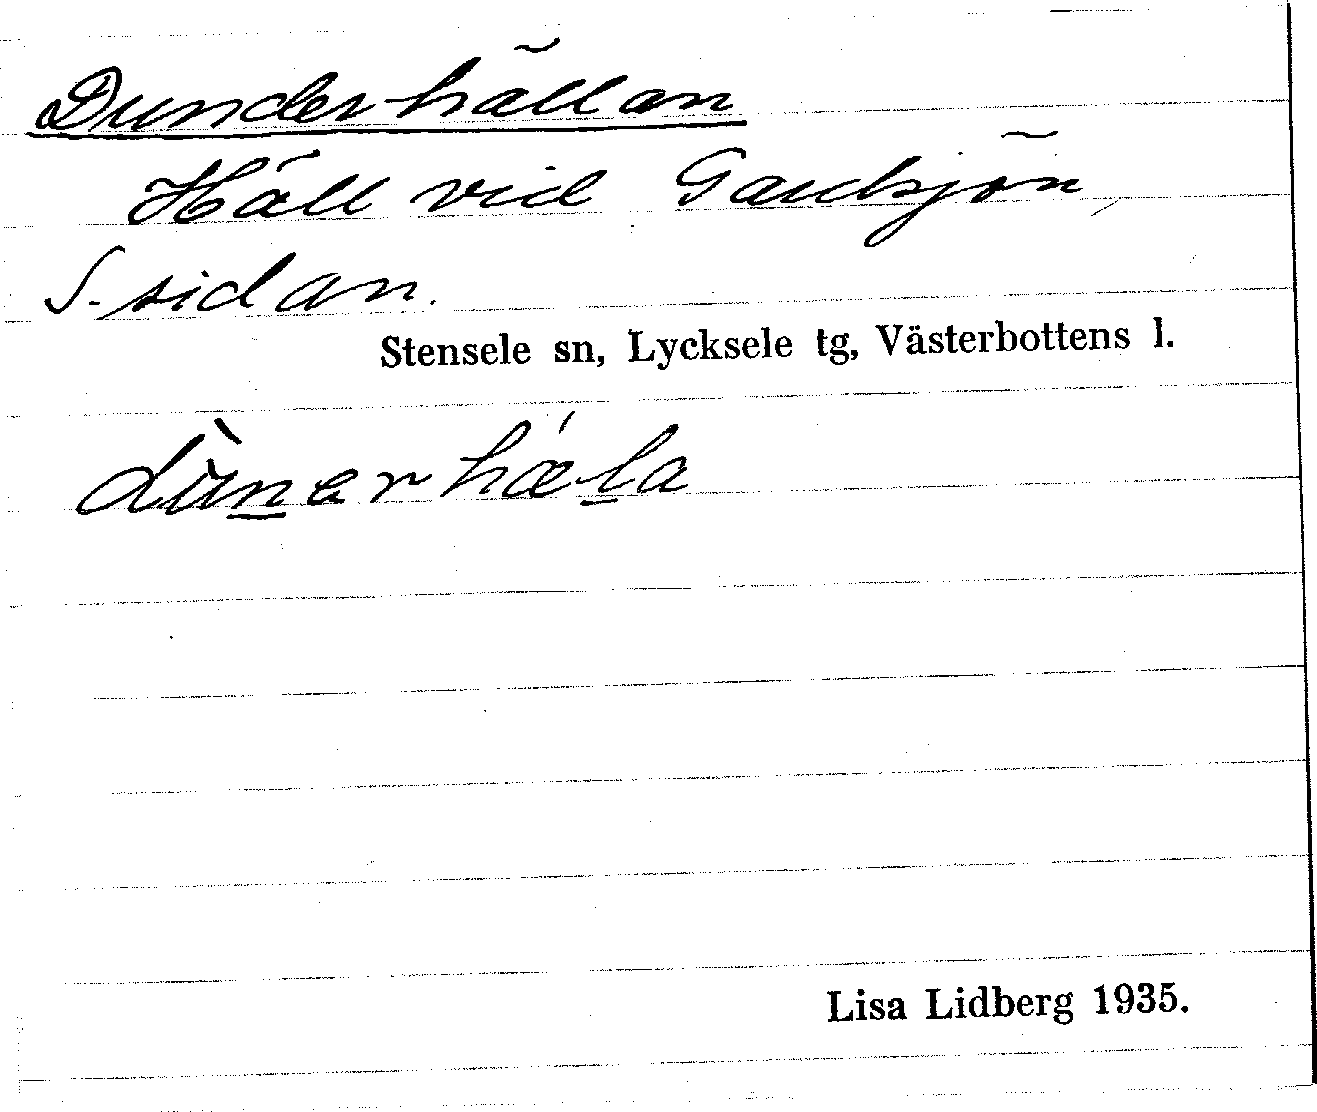 Dunderhällan
Häll vid Gauksjön,
S-sidan.
Stensele sn, Lycksele tg, Västerbottens l.
dùn̲erhǽl̲a
Lisa Lidberg 1935.